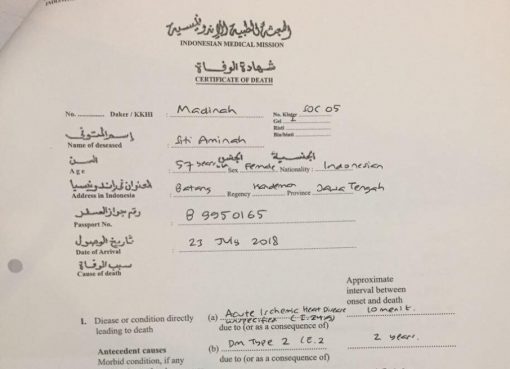 البعثة الطبية الإندونيسية
INDONESIAN MEDICAL MISSION
شهادة الوفاة
CERTIFICATE OF DEATH
No. ............ Daker / KKHI : Madinah No. Kloter SOC 05
Gel 1
Risti
Bin/binti
إسم المتوفى
Name of deseased : Siti Aminah
السن الجنس الجنسية
Age : 57 years Sex Female Nationality : Indonesian
العنوان في إندونيسيا
Address in Indonesia : Batang Regency Province Jawa Tengah
رقم جواز السفر
Passport No. : B 9950165
تاريخ الوصول
Date of Arrival : 23 July 2018
سبب الوفاة
Cause of death
Approximate
interval between
onset and death
1. Diease or condition directly (a) Acute Ischemic Heart Disease 10 menit.
leading to death due to (or as a consequence of)
Antecedent causes (b) DM Type 2 (E.2 2 years.
Morbid condition, if any due to (or as a consequence of)